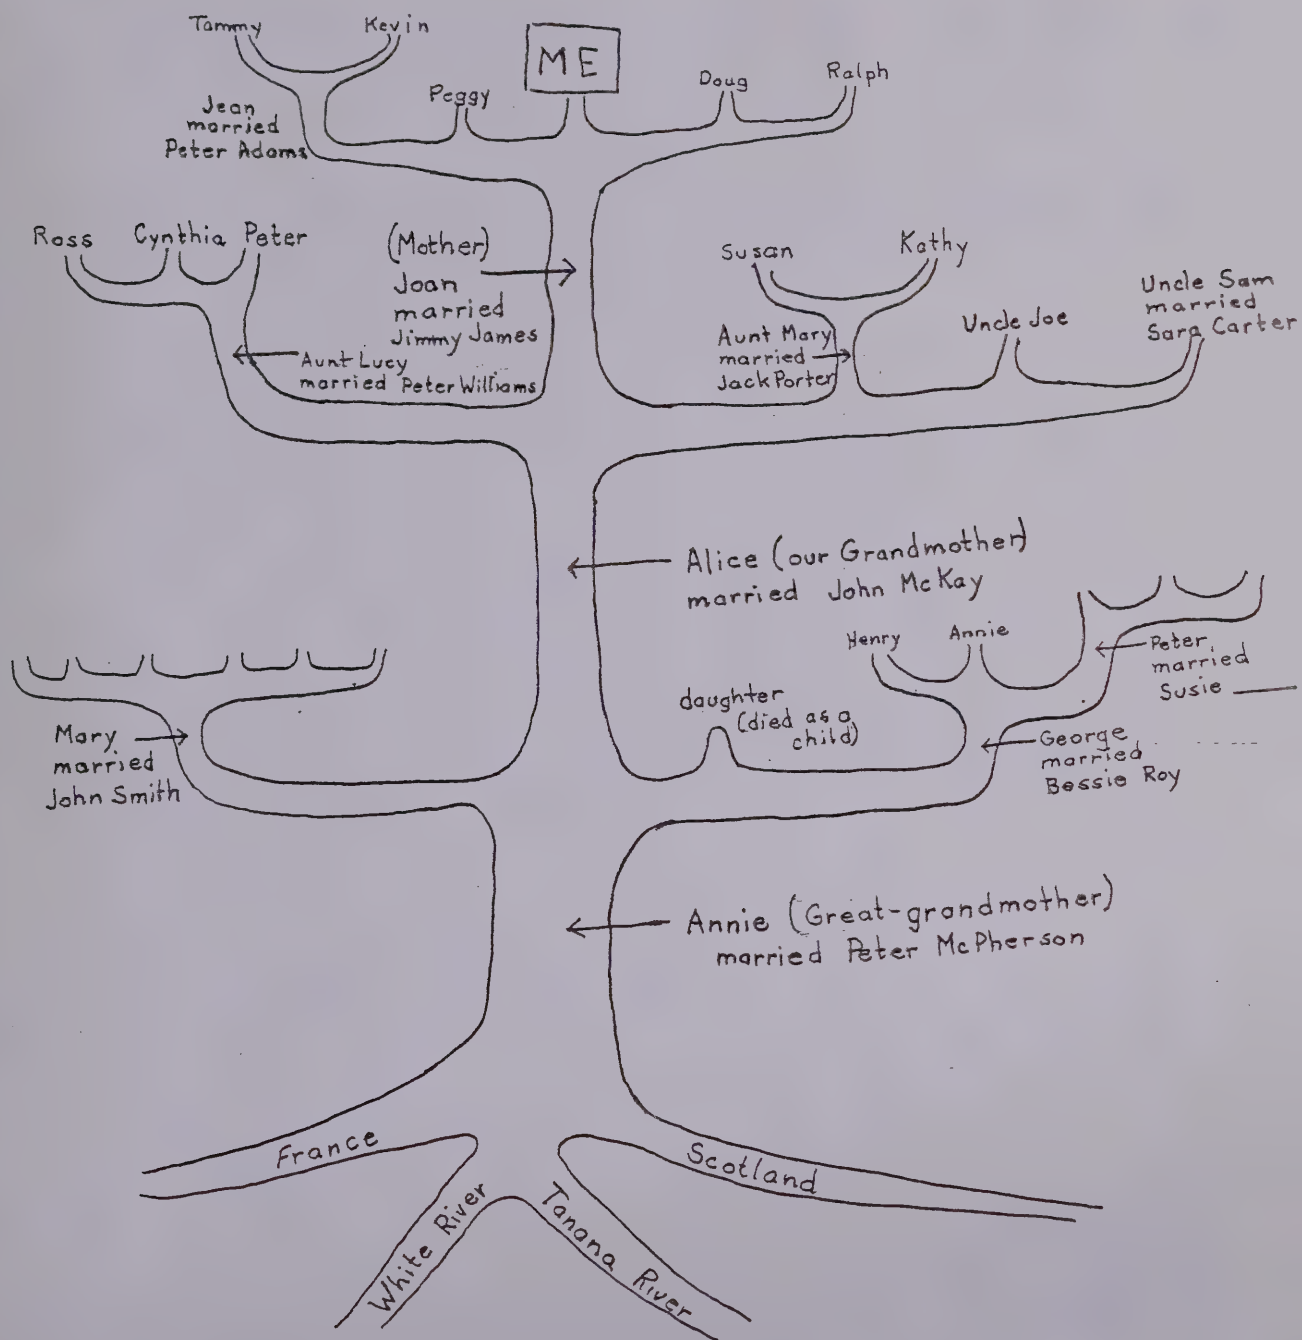 Tammy
Kevin
ME
Peggy
Doug
Ralph
Jean
married
Peter Adams
Ross
Cynthia
Peter
(Mother)
Joan
married
Jimmy James
Aunt Lucy
married Peter Williams
Susan
Kathy
Aunt Mary
married
Jack Porter
Uncle Joe
Uncle Sam
married
Sara Carter
Alice (our Grandmother)
married John McKay
Henry
Annie
Peter
married
Susie
daughter
(died as a
child)
George
married
Bessie Roy
Mary
married
John Smith
Annie (Great-grandmother)
married Peter McPherson
France
White River
Tanana River
Scotland